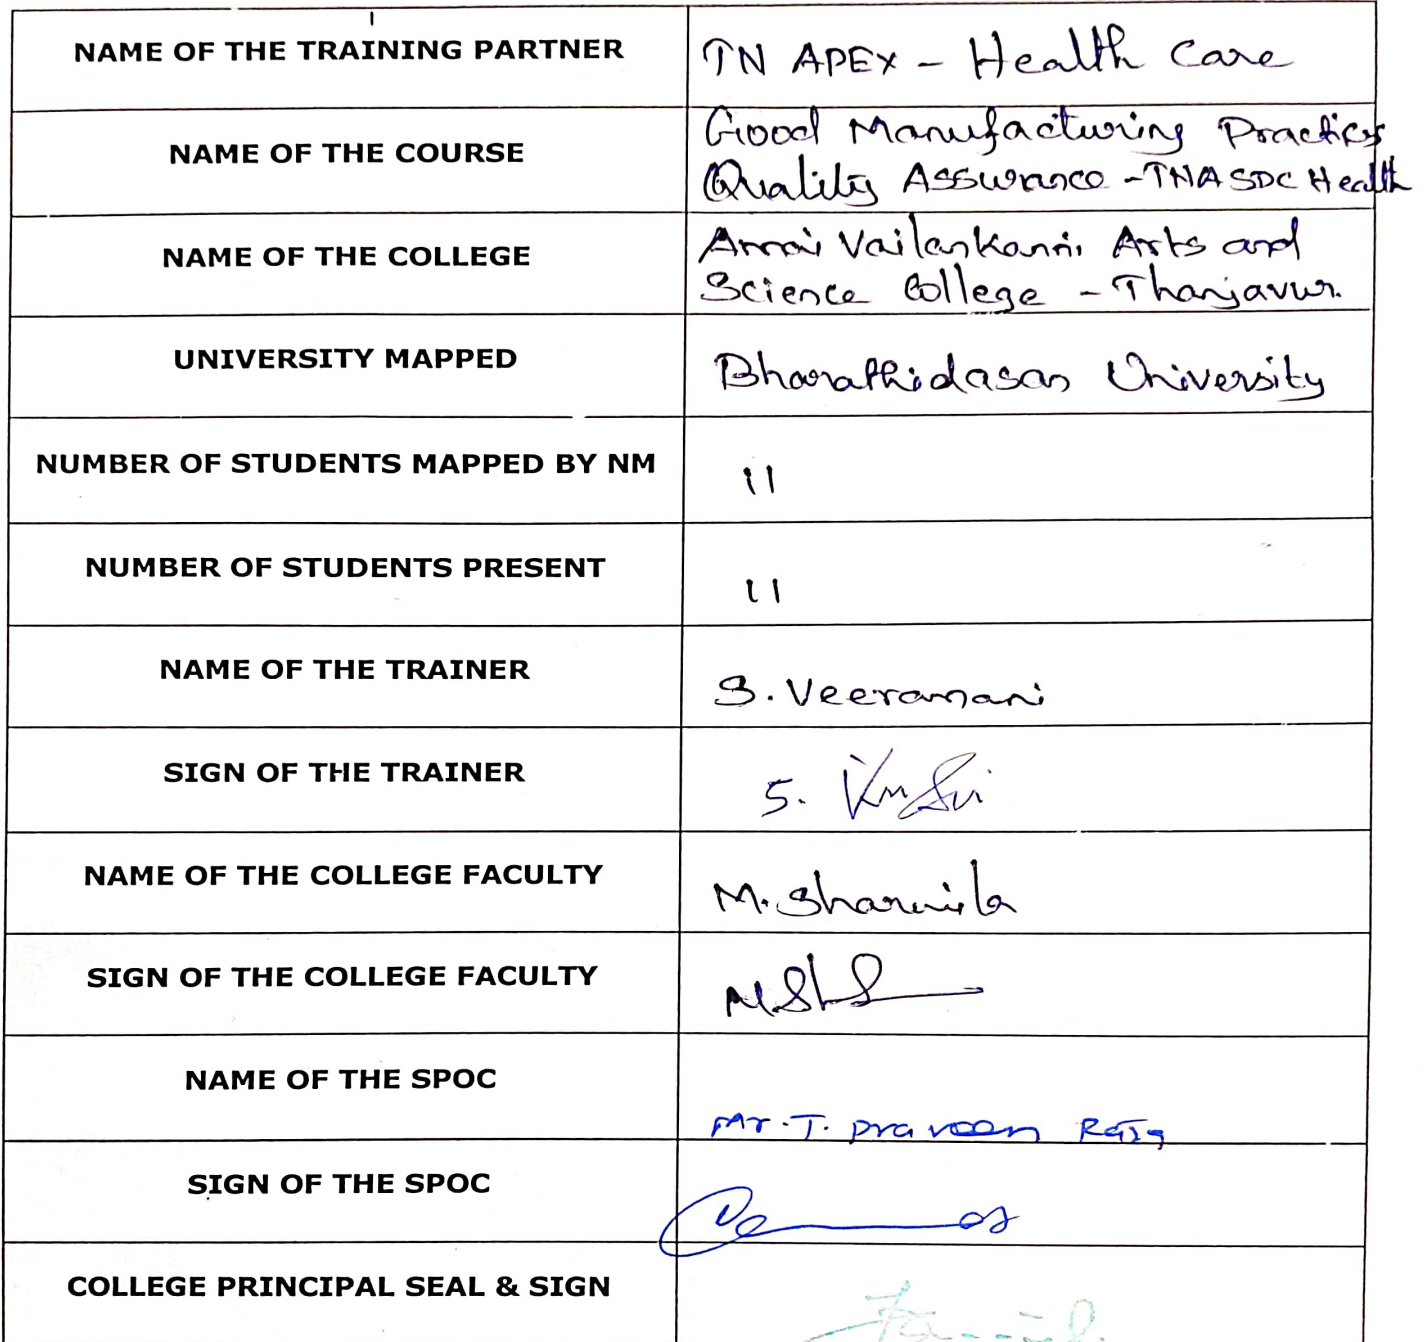 NAME OF THE TRAINING PARTNER
TN APEX - Health Care
NAME OF THE COURSE
Good Manufacturing Practices
Quality Assurance - TNASDC Health
NAME OF THE COLLEGE
Annai Vailankanni Arts and
Science College - Thanjavur.
UNIVERSITY MAPPED
Bharathidasan University
NUMBER OF STUDENTS MAPPED BY NM
11
NUMBER OF STUDENTS PRESENT
11
NAME OF THE TRAINER
S. Veeramani
SIGN OF THE TRAINER
S.
NAME OF THE COLLEGE FACULTY
M. Sharmila
SIGN OF THE COLLEGE FACULTY
NAME OF THE SPOC
Mr. T. Praveen Raja
SIGN OF THE SPOC
COLLEGE PRINCIPAL SEAL & SIGN